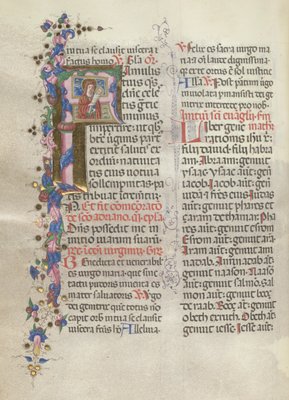 in tua se clausit viscera
factus homo.
amulis
tuis qs
dne cele
stis gre
munus
impertire: ut qb
bte virginis par
tus extitit salu
ordium: nativita
tis eius votiva
sollempnitas pa
cis tribuat incre
Dns possedit me in
initium viarum suarum
Benedicta et venerabil
es virgo maria que sine
tactu pudoris inventa es
mater salvatoris. V Virgo
dei genitrix que totus no
capit orbis in tua se clausit
viscera fcus ho Alleluia
V Felix es sacra virgo ma
ria et omni laude dignissima
quia ex te ortus e sol iustitie
Alla V Post partum virgo
inviolata permansisti dei ge
nitrix intercede pro nob
Initium sci evagly secd
matheu
Liber gene
rationis ihu xi
filij david filij habra
am. Abraam genuit
ysaac. ysaac aut genuit
iacob. Iacob aut genuit
iudam et fratres eius.
Iudas aut genuit phares et
zaram de thamar. Pha
res aut genuit esrom
Esrom aut genuit aram
Aram aut genuit amin
adab. Aminadab at ge
nuit naason. Naason
aut genuit salmon. Salmo
aut genuit booz de
raab. Booz aut genuit
obeth ex ruth. Obeth at
genuit iesse. Iesse aut